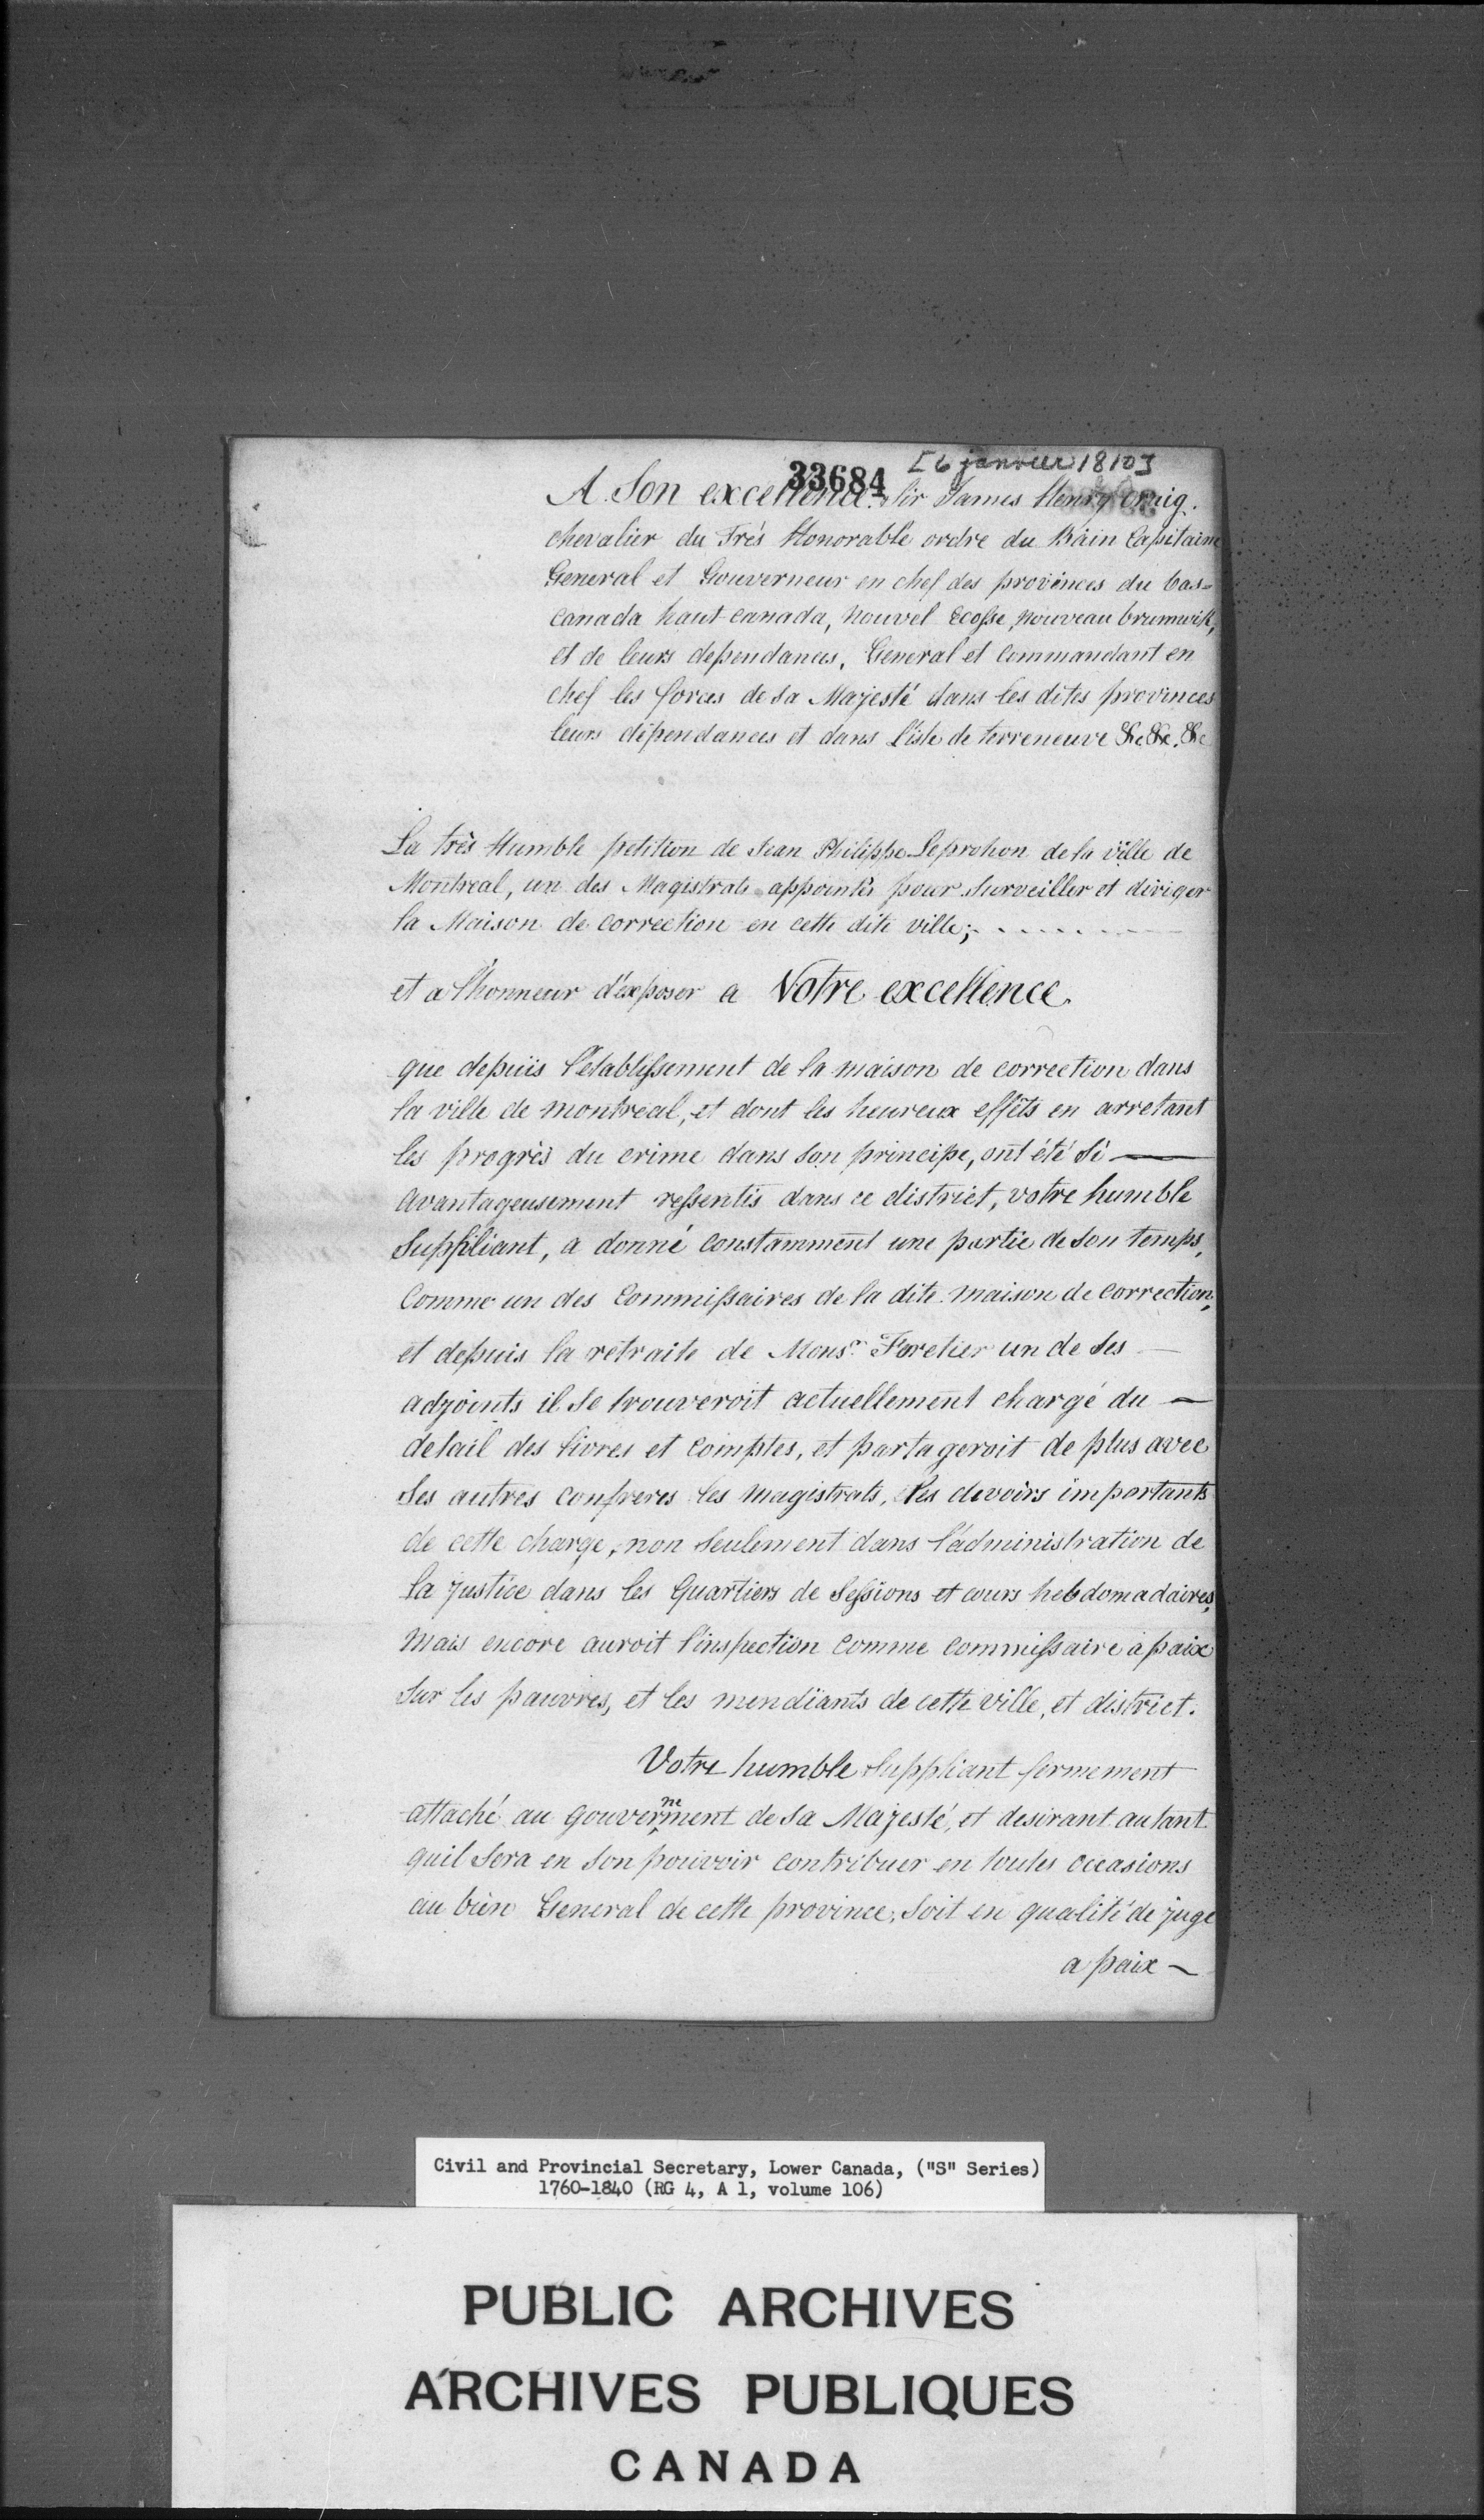 [6 janvier 1810]
33684
A Son excellence Sir James Henry Craig.
chevalier du Très Honorable ordre du Bain Capitaine
General et Gouverneur en chef des provinces du bas=
canada haut canada, Nouvel Ecosse, nouveau brunwik,
et de leurs dependances, General et Commandant en
chef les forces de sa Majesté dans les dites provinces
leurs dépendances et dans l'isle de terreneuve &c &c. &c
La très Humble petition de Jean Philippe Leprohon de la ville de
Montreal, un des Magistrats appointés pour Surveiller et diriger
la Maison de correction en cette dite ville;
et a l'honneur d'exposer a Votre excellence.
que depuis l'etablissement de la maison de correction dans
la ville de montreal, et dont les heureux effets en arretant
les progrès du crime dans son principe, ont été si
avantageusement ressentis dans ce district, votre humble
Suppliant, a donné constamment une partie de son temps,
Comme un des Commissaires de la dite maison de correction,
et depuis la retraite de Monsr. Foretier un de ses
adjoints il se trouveroit actuellement chargé du
detail des livres et comptes, et partageroit de plus avec
ses autres confreres les magistrats, les devoirs importants
de cette charge, non seulement dans l'administration de
la justice dans les Quartiers de Sessions et cours hebdomadaires,
mais encore auroit l'inspection comme commissaire à paix
sur les pauvres, et les mendiants de cette ville, et district.
Votre humble Suppliant fermement
attaché au gouvernement de sa Majesté, et desirant autant
quil sera en son pouvoir contribuer en toutes occasions
au bien General de cette province, soit en qualité de juge
a paix
Civil and Provincial Secretary, Lower Canada, ("S" Series)
1760-1840 (RG 4, A 1, volume 106)
PUBLIC ARCHIVES
ARCHIVES PUBLIQUES
CANADA